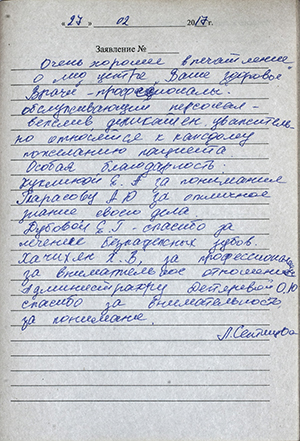 "27" 02 2017 г.
Заявление №
Очень хорошее впечатление
о мед центре "Ваше здоровье"
Врачи - професионалы.
обслуживающий персонал -
вежлив уважитель
но относятся к каждому
пожеланию пациента
Особая благодарность.
Кухминой Е. А за понимание
Тарасову А Ю за отличное
знание своего дела.
Дубовой Е. Г - спасибо за
лечение зубов.
Хачикян К. В, за професионализм
за внимательное отношение
Администратору Дегтеревой О. Ю
спасибо за внимательность
за понимание.